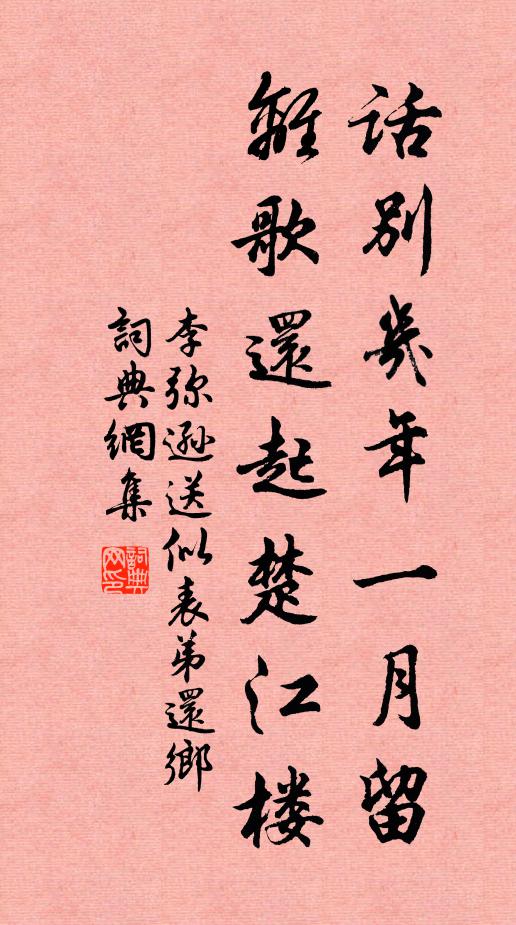 话别几年一月留
離歌還起楚江楼
李弥遜送似表弟還鄉
詞典網集
詞典网印